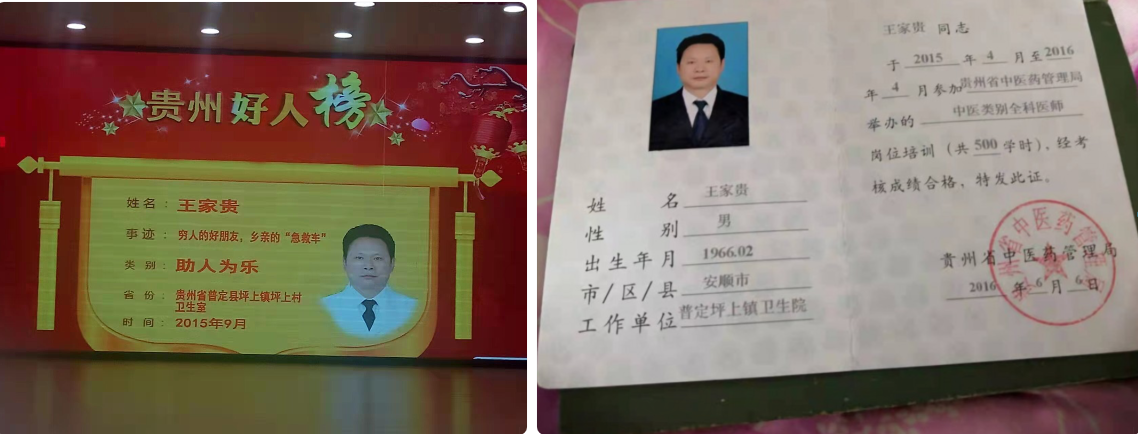 贵州好人榜
姓名：王家贵
事迹：穷人的好朋友，乡亲的“急救车”
类别：助人为乐
省份：贵州省普定县坪上镇坪上村
卫生室
时间：2015年9月
姓名 王家贵
性别 男
出生年月 1966.02
市/区/县 安顺市
工作单位 普定坪上镇卫生院
王家贵 同志
于 2015 年 4 月至 2016
年 4 月参加贵州省中医药管理局
举办的 中医类别全科医师
岗位培训（共 500 学时），经考
核成绩合格，特发此证。
贵州省中医药管理局
2016 年 6 月 6 日
省中医药管